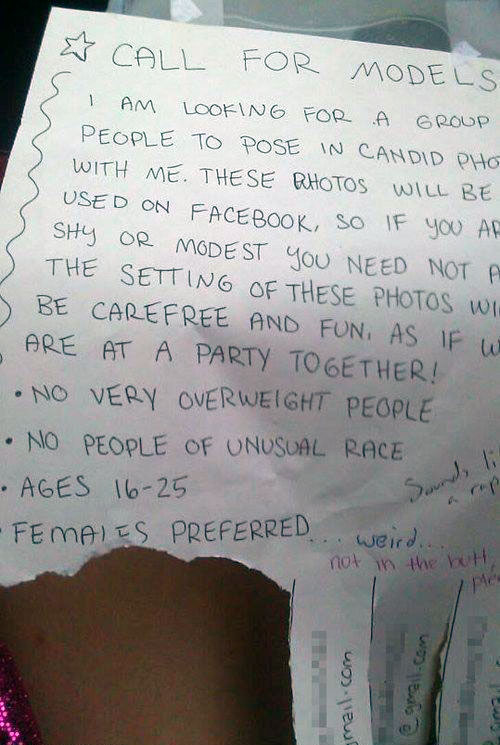 CALL FOR MODELS
I AM LOOKING FOR A GROUP
PEOPLE TO POSE IN CANDID PHO
WITH ME. THESE PHOTOS WILL BE
USED ON FACEBOOK, SO IF YOU AR
SHY OR MODEST YOU NEED NOT A
THE SETTING OF THESE PHOTOS WI
BE CAREFREE AND FUN, AS IF W
ARE AT A PARTY TOGETHER!
• NO VERY OVERWEIGHT PEOPLE
• NO PEOPLE OF UNUSUAL RACE
• AGES 16-25
Sounds li
a rap
• FEMALES PREFERRED... weird...
not in the butt,
plea
mail.com
@gmail.com